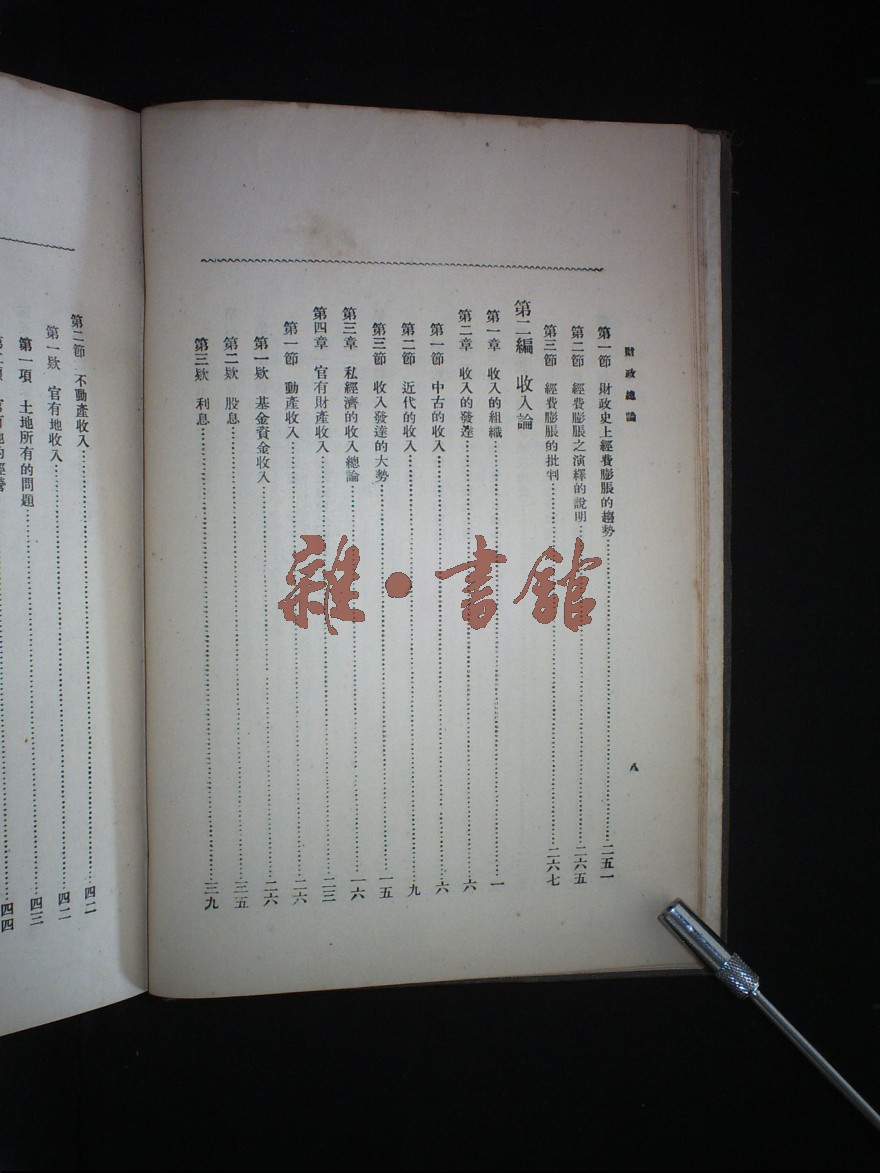 財政總論
八
第一節　財政史上經費膨脹的趨勢……二五一
第二節　經費膨脹之演繹的說明……二六五
第三節　經費膨脹的批判……二六七
第二編　收入論
第一章　收入的組織……一
第二章　收入的發達……六
第一節　中古的收入……六
第二節　近代的收入……九
第三節　收入發達的大勢……一五
第三章　私經濟的收入總論……一六
第四章　官有財產收入……二三
第一節　動產收入……二六
第一欵　基金資金收入……二六
第二欵　股息……三五
第三欵　利息……三九
第二節　不動產收入……四二
第一欵　官有地收入……四二
第一項　土地所有的問題……四三
第二項　官有地的經營……四四
雜·書館